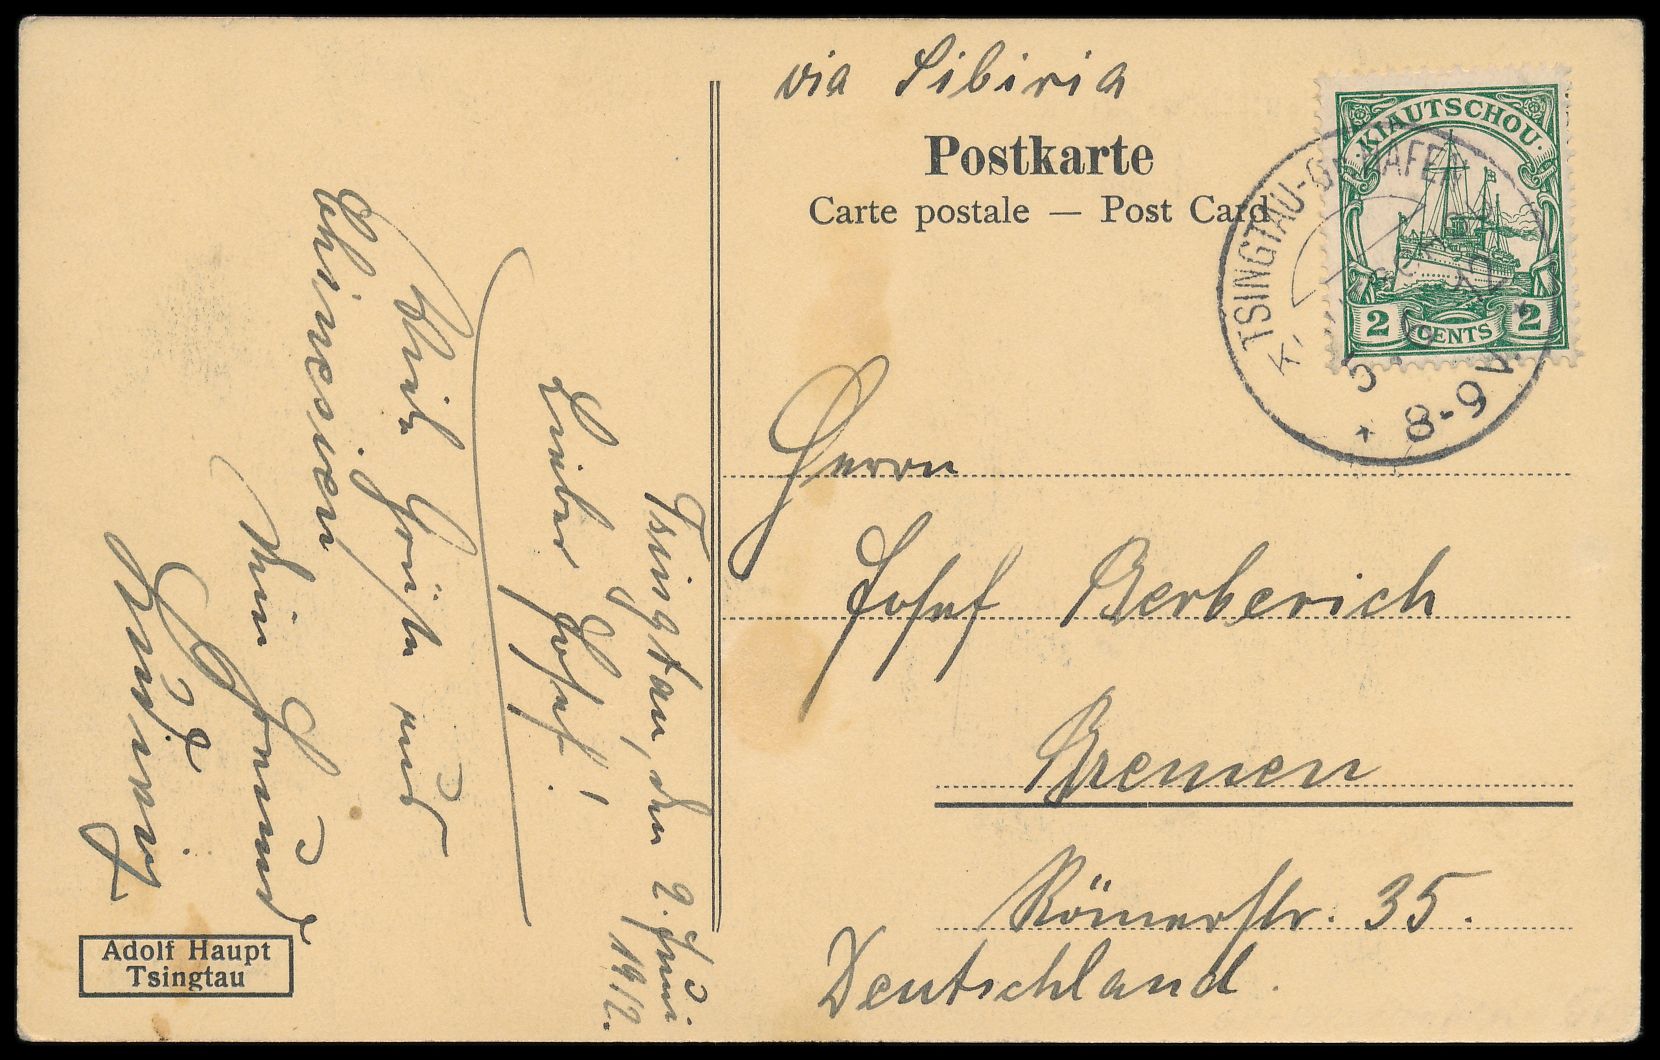 via Sibiria
Postkarte
Carte postale — Post Card
KIAUTSCHOU
2 CENTS 2
TSINGTAU-GR. HAFEN
8-9V
Herrn
Josef Berberich
Bremen
Römerstr. 35.
Deutschland.
Tsingtau, den 2. Juni
1912.
Lieber Josef!
Grüße und
Chinesien
Dein Freund
Adolf Haupt
Tsingtau